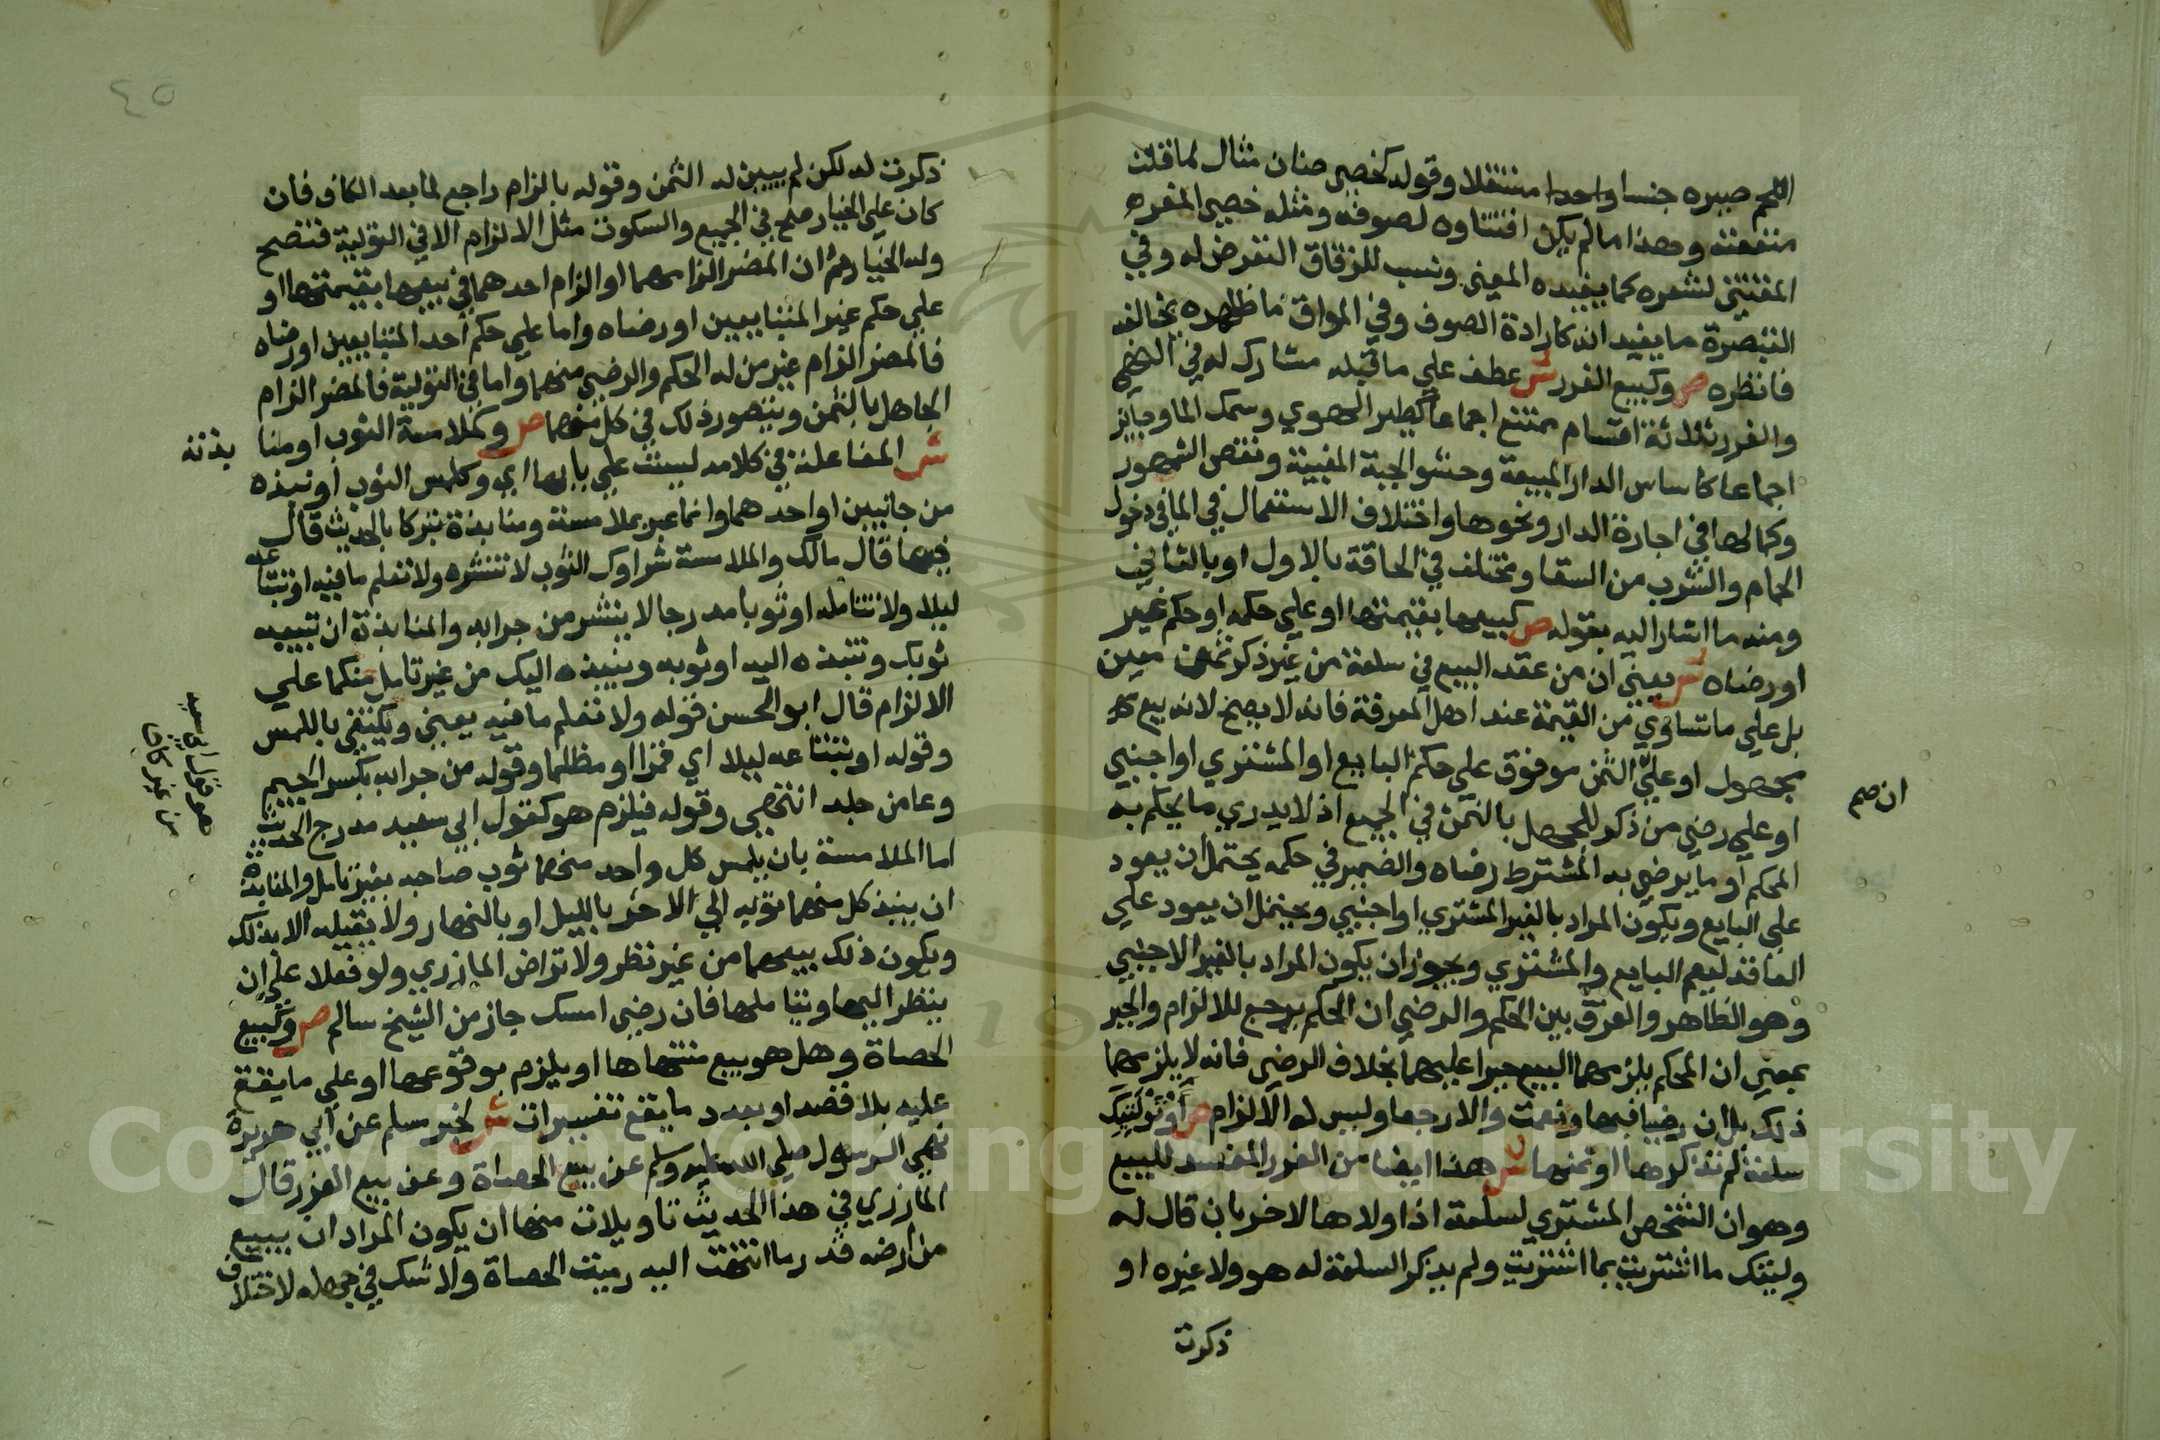 اللحم صيره جنسا واحدا مستقلا وقوله كخصي ضان مثال لما قلت
منفعته وهذا ما لم يكن اقتناوه لصوفه ومثله خصي المعز
المقتني لشعره كما يفيده المعنى ونسب للزقاق التعرض له وفي
التبصرة ما يفيد ان كارادة الصوف وفي المواق ما ظاهره يخالفه
فانظره ص وكبيع الغرر ش عطف علي ما قبله مشارك له في النهي
والغرر ثلاثة اقسام ممتنع اجماعا كطير الهوي وسمك الما وجايز
اجماعا كاساس الدار المبيعة وحشو الجبة المغيبة ونقص الشهور
وكمالها في اجارة الدار ونحوها واختلاف الاستعمال في الما في دخول
الحمام والشرب من السقا ومختلف في الحاقة بالاول او بالثاني
ومنه ما اشار اليه بقوله ص كبيعها بقيمتها او علي حكمه او حكم غير
او رضاه ش يعني ان من عقد البيع في سلعة من غير ذكر ثمن معين
بل علي ما تساوي من القيمة عند اهل المعرفة فانه لا يصح لانه بيع
مجهول او علي الثمن موقوف علي حكم البايع او المشتري او اجنبي
او علي رضي من ذكر للجهل بالثمن في الجميع اذ لا يدري ما يحكم به
المحكم او ما يرضي به المشترط رضاه والضمير في حكمه يحتمل ان يعود
علي البايع ويكون المراد بالغير المشتري او اجنبي ويحتمل ان يعود علي
العاقد ليعم البايع والمشتري ويجوز ان يكون المراد بالغير الاجنبي
وهو الظاهر والفرق بين الحكم والرضي ان الحكم يرجع للالزام والجبر
بمعني ان المحكم يلزمهما البيع جبرا عليهما بخلاف الرضي فانه لا يلزمهما
ذلك بل ان رضيا فبها ونعمت والا رجعا وليس له الالزام ص أو توليتك
سلعة لم تذكرها او ثمنها ش هذا ايضا من الغرر المفسد للبيع
وهو ان الشخص المشتري لسلعة اذا ولاها لاخر بان قال له
وليتك ما اشتريت بما اشتريت ولم يذكر السلعة له هو ولا غيره او
ذكرت
ان صم
٤٥
ذكرت له لكن لم يبين له الثمن وقوله بالزام راجع لما بعد الكاف فان
كان علي الخيار صح في الجميع والسكوت مثل الالزام الا في التولية فتصح
وله الخيار ثم ان المضر الزامهما او الزام احدهما في بيعها بقيمتها او
علي حكم غير المتبايعين او رضاه واما علي حكم احد المتبايعين او رضاه
فالمضر الزام غير من له الحكم والرضي منهما واما في التولية فالمضر الزام
الجاهل بالثمن ويتصور ذلك في كل منهما ص وكملامسة الثوب او منا
بذته
ش المفاعلة في كلامه ليست علي بابها اي وكلمس الثوب او نبذه
من جانبين او احدهما وانما عبر بملامسة ومنابذة تبركا بالحديث قال
فيهما قال مالك والملامسة شراوك الثوب لا تنشره ولا تعلم ما فيه او تبتاعه
ليلا ولا تتامله او ثوبا مدرجا لا ينشر من جرابه والمنابذة ان تبيعه
ثوبك وتنبذه اليه او ثوبه وينبذه اليك من غير تامل منكما علي
الالزام قال ابو الحسن قوله ولا تعلم ما فيه يعني ويكتفي باللمس
وقوله او تبتاعه ليلا اي قمرا او مظلما وقوله من جرابه بكسر الجيم
وعا من جلد انتهي وقوله فيلزم هو كقول ابي سعيد مدرج الحديث
اما الملامسة بان يلمس كل واحد منهما ثوب صاحبه بغير تامل والمنابذة
ان ينبذ كل منهما ثوبه الي الاخر بالليل او بالنهار ولا يقيله الا بذلك
ويكون ذلك بيعهما من غير نظر ولا تراض المازري ولو فعلا علي ان
ينظر اليها ويتاملها فان رضي امسك جاز من الشيخ سالم ص وكبيع
الحصاة وهل هو بيع منتهاها او يلزم بوقوعها او علي ما يقع
عليه بلا قصد او بعدد ما يقع تفسيرات ش لخبر مسلم عن ابي هريرة
نهي الرسول صلي الله عليه وسلم عن بيع الحصاة وعن بيع الغرر قال
المازري في هذا الحديث تاويلات منها ان يكون المراد ان يبيع
من ارضه قدر ما انتهت اليه رمية الحصاة ولا شك في جهله لاختلاف
Copyright © King Saud University